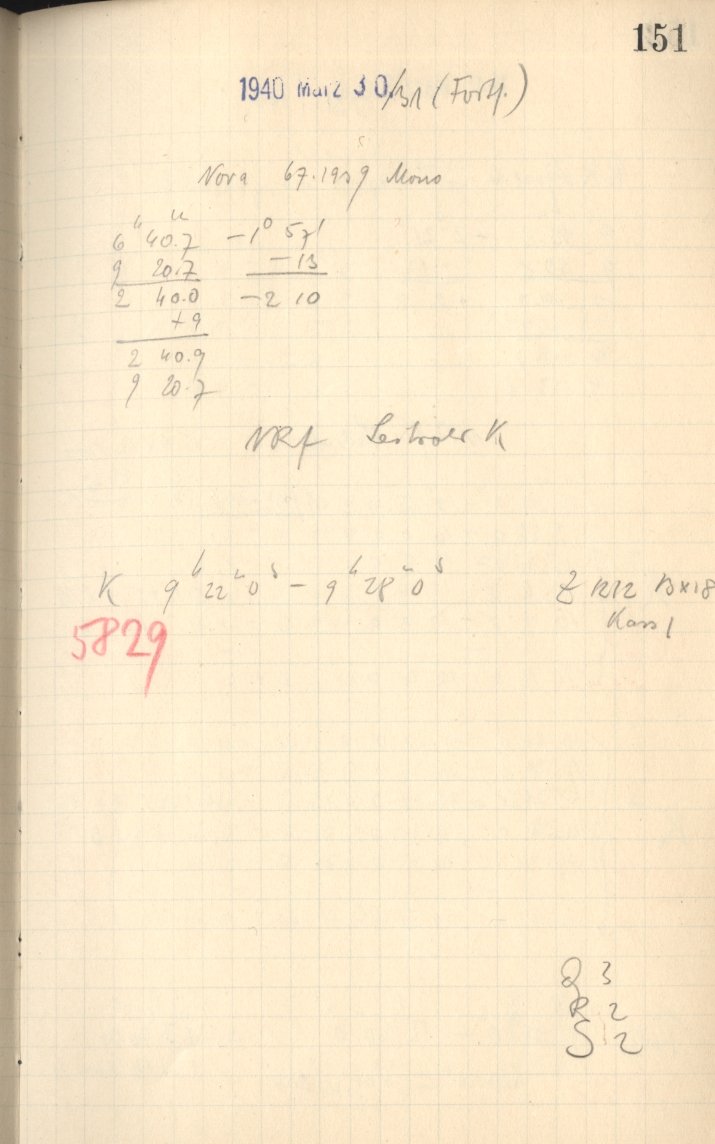 151
1940 März 30./31 (Forts.)
Nova 67.1939 Mono
6ʰ 40.7ᵐ -1° 57'
9 20.7 -13
2 40.0 -2 10
+9
2 40.9
9 20.7
K
K 9ʰ 22ᵐ 0ˢ - 9ʰ 28ᵐ 0ˢ Z 1212 13x18
Kass 1
5829
Q 3
R 2
S 2